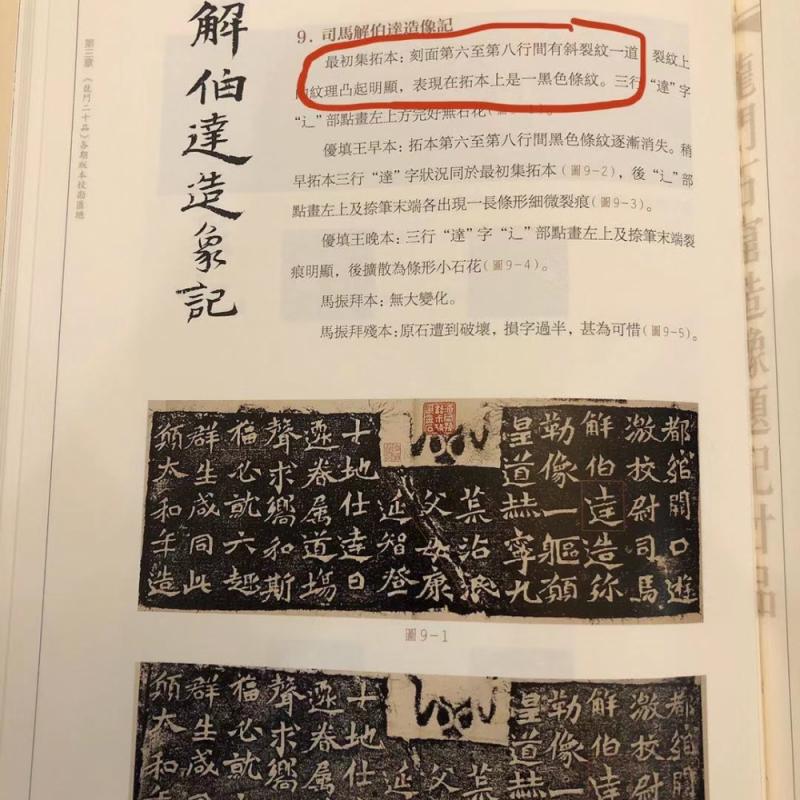 第三章 《龍門二十品》各期版本校勘匯總
解伯達造象記
9. 司馬解伯達造像記
最初集拓本：刻面第六至第八行間有斜裂紋一道，裂紋上
紋理凸起明顯，表現在拓本上是一黑色條紋。三行“達”字
“辶”部點畫左上方完好無石花
優填王早本：拓本第六至第八行間黑色條紋逐漸消失。稍
早拓本三行“達”字狀況同於最初集拓本（圖9-2），後“辶”部
點畫左上及捺筆末端各出現一長條形細微裂痕（圖9-3）。
優填王晚本：三行“達”字“辶”部點畫左上及捺筆末端裂
痕明顯，後擴散為條形小石花（圖9-4）。
馬振拜本：無大變化。
馬振拜殘本：原石遭到破壞，損字過半，甚為可惜（圖9-5）。
都綰闕口遊
激校尉司馬
解伯達造弥
勒像一軀願
皇道赫寧九
荒沾浪
父母康
延智登
十地仕達日
遷眷属道場
聲求嚮和斯
福必就六趣
群生咸同此
願太和年造
圖9-1
龍門石窟造像題記廿品